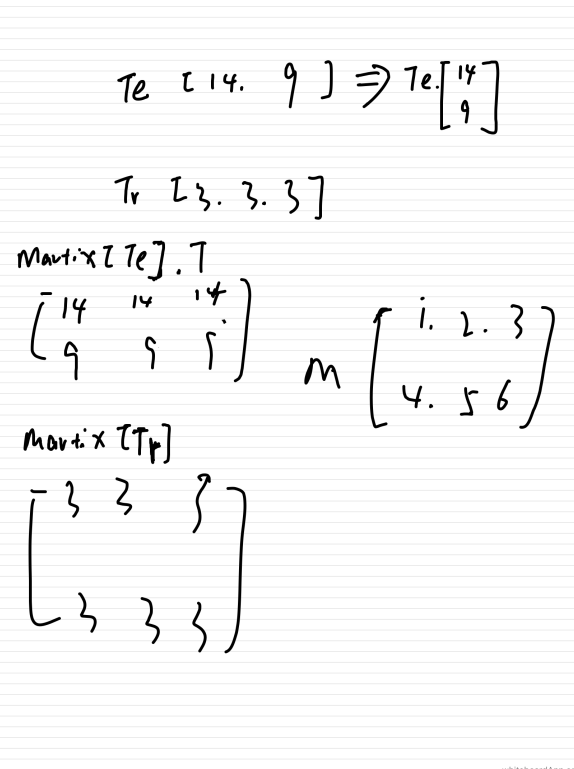 Te [ 14. 9 ] ⇒ Te. [ 14
9 ]
Tr [ 3. 3. 3 ]
Martix [ Te ] . T
[ 14 14 14
9 9 9 ]
M [ 1. 2. 3
4. 5 6 ]
Martix [Tr]
[ 3 3 3
3 3 3 ]